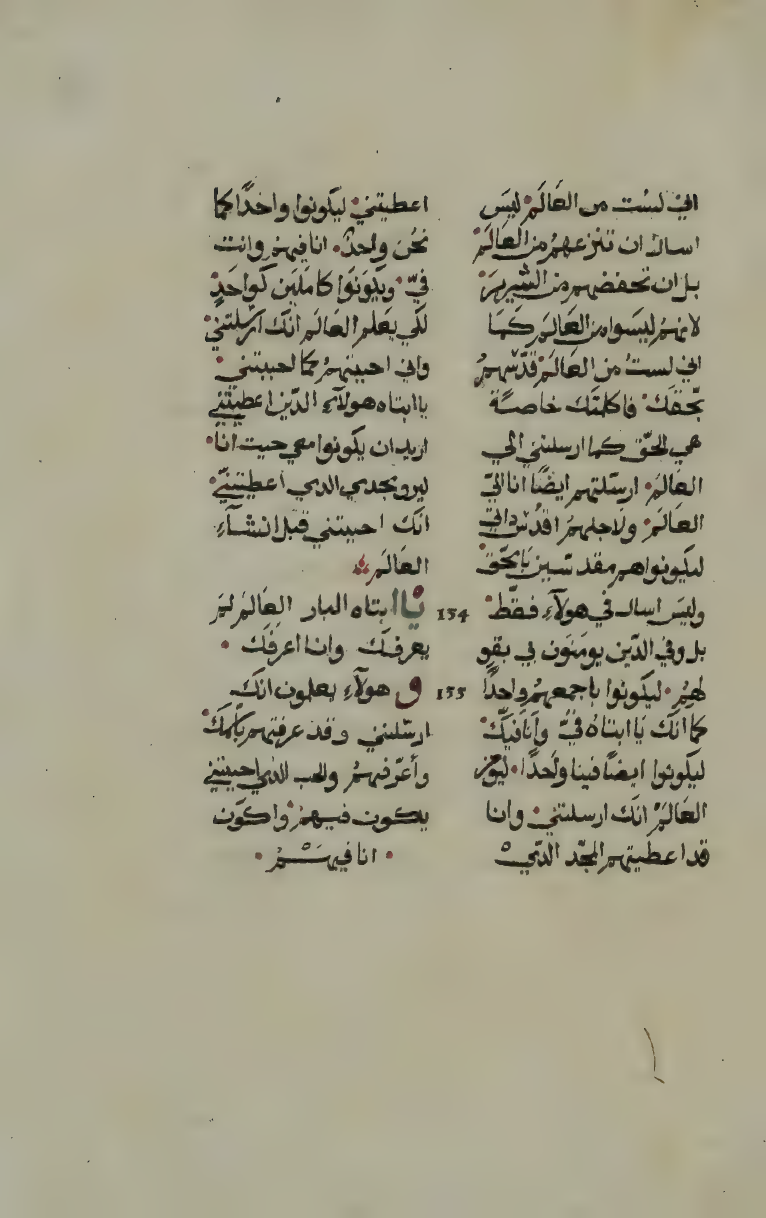 اني لست من العالم ليس
اسالك ان تنزعهم من العالم
بل ان تحفضهم من الشرير
لانهم ليسوا من العالم كما
اني لست من العالم قدسهم
بحقك فا كلمتك خاصة
هي الحق كما ارسلتني الي
العالم ارسلتهم ايضًا انا الي
العالم ولاجلهم اقدس داتي
ليكونوا هم مقدسين بالحق
وليس اسالك في هولآء فقط
بل وفي الدين يومنون بي بقو
لهم ليكونوا باجمعهم واحدًا
كما انك يا ابتاه فيّ وانا فيك
ليكونوا ايضًا فينا واحدًا ليومن
العالم انك ارسلتني وانا
قد اعطيتهم المجد الدي
اعطيتني ليكونوا واحدًا كما
نحن واحد انا فيهم وانت
فيّ ويكونوا كاملين كواحد
لكي يعلم العالم انك ارسلتني
واني احببتهم كما احببتني
يا ابتاه هولآء الدين اعطيتني
اريد ان يكونوا معي حيت انا
ليرو مجدي الدي اعطيتني
انك احببتني قبل انشآء
العالم
154 يا ابتاه البار العالم لم
يعرفك وانا اعرفك
155 و هولآء يعلمون انك
ارسلتني وقد عرفتهم باسمك
وأعرفهم والحب الدي احببتني
يكون فيهم واكون
انا فيهم